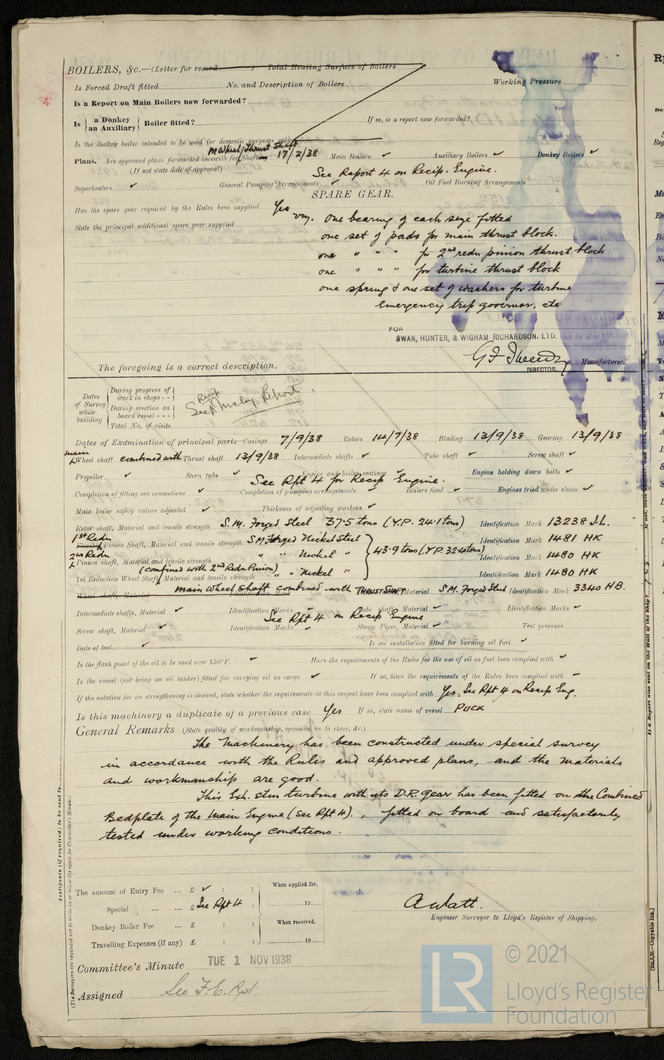 BOILERS, &c.—(Letter for record ) Total Heating Surface of Boilers
Is Forced Draft fitted No. and Description of Boilers Working Pressure
Is a Report on Main Boilers now forwarded?
Is { a Donkey / an Auxiliary } Boiler fitted? If so, is a report now forwarded?
Is the donkey boiler intended to be used for domestic purposes only
M Wheel/Thrust Shaft
Plans. Are approved plans forwarded herewith for Shafting 17/2/38 Main Boilers ✓ Auxiliary Boilers ✓ Donkey Boilers ✓
(If not state date of approval)
See Report 4 on Recip. Engine.
Superheaters ✓ General Pumping Arrangements Oil Fuel Burning Arrangements
SPARE GEAR.
Has the spare gear required by the Rules been supplied Yes
State the principal additional spare gear supplied
one bearing of each size fitted
one set of pads for main thrust block.
one " " " for 2nd redn pinion thrust block
one " " " for turbine thrust block
one spring & one set of washers for turbine
Emergency trip governor, etc
FOR
SWAN, HUNTER, & WIGHAM RICHARDSON, LTD.
DIRECTOR.
Manufacturer.
The foregoing is a correct description,
Dates of Survey while building
During progress of work in shops - -
During erection on board vessel - - -
Total No. of visits
See Recip Report
Dates of Examination of principal parts—Casings 7/9/38 Rotors 14/7/38 Blading 13/9/38 Gearing 13/9/38
Main Wheel shaft combined with Thrust shaft 13/9/38 Intermediate shafts ✓ Tube shaft ✓ Screw shaft ✓
Propeller ✓ Stern tube ✓ Engine and boiler seatings ✓ Engine holding down bolts ✓
See Rpt 4 for Recip Engine.
Completion of fitting sea connections ✓ Completion of pumping arrangements Boilers fixed ✓ Engines tried under steam ✓
Main boiler safety valves adjusted ✓ Thickness of adjusting washers ✓
Rotor shaft, Material and tensile strength S.M. Forged Steel 37.5 tons (Y.P. 24.1 tons) Identification Mark 13238 J.L.
1st Redn Pinion Shaft, Material and tensile strength S M Forged Nickel Steel Identification Mark 1481 HK
43.9 tons (Y.P. 32.4 tons)
2nd Redn Pinion shaft, Material and tensile strength " " Nickel " Identification Mark 1480 HK
(combined with 2nd Redn Pinion)
1st Reduction Wheel Shaft, Material and tensile strength " " Nickel " Identification Mark 1480 HK
Wheel shaft, Material main Wheel Shaft combined with THRUST SHAFT Material S M. Forged Steel Identification Mark 3340 HB.
Intermediate shafts, Material ✓ Identification Marks ✓ Tube shaft, Material ✓ Identification Marks ✓
See Rpt 4 on Recip Engine
Screw shaft, Material ✓ Identification Marks ✓ Steam Pipes, Material ✓ Test pressure
Date of test ✓ Is an installation fitted for burning oil fuel ✓
Is the flash point of the oil to be used over 150°F. ✓ Have the requirements of the Rules for the use of oil as fuel been complied with ✓
Is the vessel (not being an oil tanker) fitted for carrying oil as cargo ✓ If so, have the requirements of the Rules been complied with ✓
If the notation for ice strengthening is desired, state whether the requirements in this respect have been complied with Yes, See Rpt 4 on Recip Eng.
Is this machinery a duplicate of a previous case Yes If so, state name of vessel PUCK
General Remarks (State quality of workmanship, opinions as to class, &c.)
The Machinery has been constructed under special survey
in accordance with the Rules and approved plans, and the materials
and workmanship are good.
This Exh. stm turbine with its D.R. Gear has been fitted on the Combined
Bedplate of the Main Engine (see Rpt 4), fitted on board and satisfactorily
tested under working conditions.
The amount of Entry Fee ... £ ✓ : : When applied for,
Special ... £ See Rpt 4 19
Donkey Boiler Fee ... £ : : When received,
Travelling Expenses (if any) £ : : 19
A Watt.
Engineer Surveyor to Lloyd's Register of Shipping.
Committee's Minute TUE 1 NOV 1938
Assigned See F.E. Rpt.
© 2021
LR
Lloyd's Register
Foundation